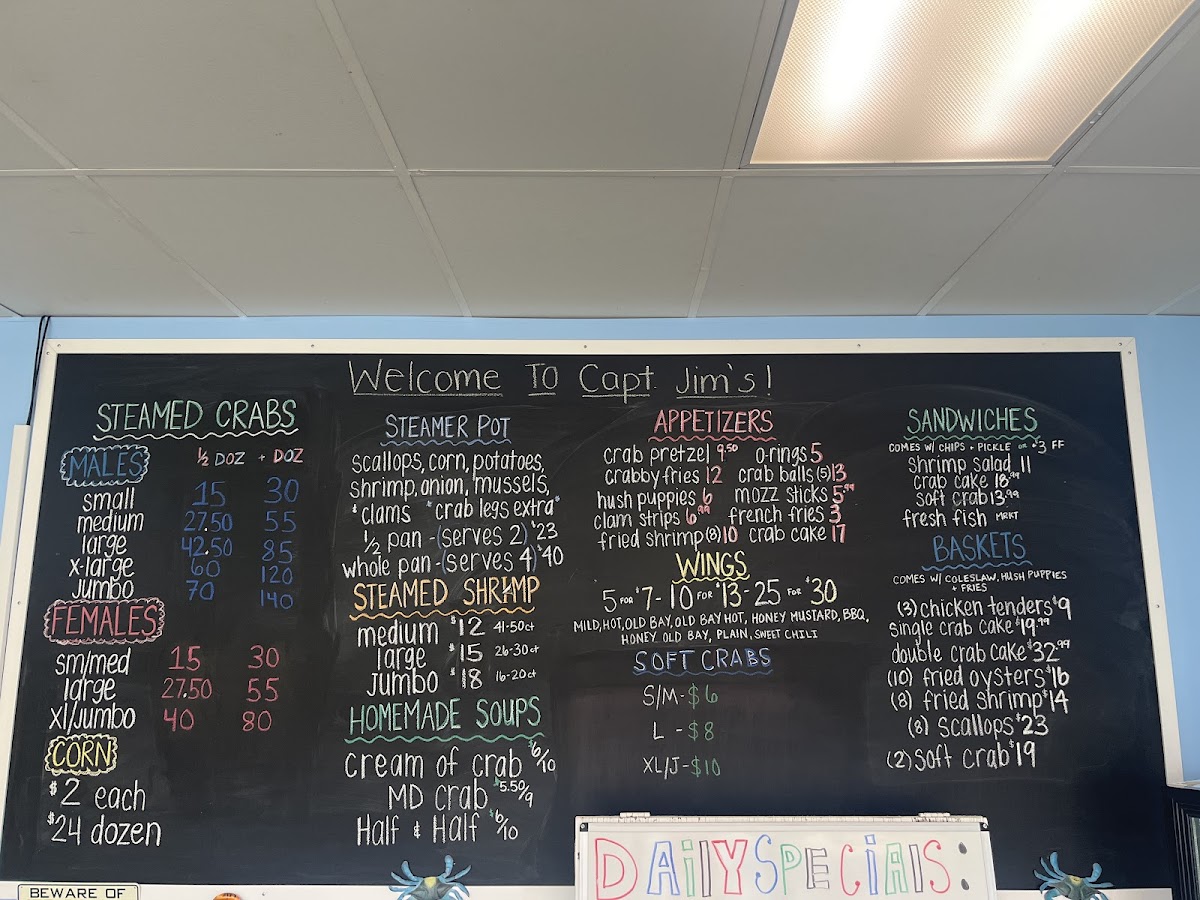 Welcome To Capt Jim's!
STEAMED CRABS
MALES ½ DOZ + DOZ
small 15 30
medium 27.50 55
large 42.50 85
x-large 60 120
jumbo 70 140
FEMALES
sm/med 15 30
large 27.50 55
xl/jumbo 40 80
CORN
$2 each
$24 dozen
STEAMER POT
scallops, corn, potatoes,
shrimp, onion, mussels,
*clams *crab legs extra*
½ pan - (serves 2) $23
whole pan - (serves 4) $40
STEAMED SHRIMP
medium $12 41-50ct
large $15 26-30ct
Jumbo $18 16-20ct
HOMEMADE SOUPS
cream of crab $6/10
MD crab $5.50/9
Half & Half $6/10
APPETIZERS
crab pretzel 9.50 o-rings 5
crabby fries 12 crab balls (5) 13
hush puppies 6 mozz sticks 5.99
clam strips 6.99 french fries 3
fried shrimp (8) 10 crab cake 17
WINGS
5 FOR $7 - 10 FOR $13 - 25 FOR $30
MILD, HOT, OLD BAY, OLD BAY HOT, HONEY MUSTARD, BBQ,
HONEY OLD BAY, PLAIN, SWEET CHILI
SOFT CRABS
S/M - $6
L - $8
XL/J - $10
SANDWICHES
COMES W/ CHIPS + PICKLE or $3 FF
shrimp salad 11
crab cake 18.99
soft crab 13.99
fresh fish MRKT
BASKETS
COMES W/ COLESLAW, HUSH PUPPIES
+ FRIES
(3) chicken tenders $9
single crab cake $19.99
double crab cake $32.99
(10) fried oysters $16
(8) fried shrimp $14
(8) scallops $23
(2) soft crab $19
DAILY SPECIALS:
BEWARE OF